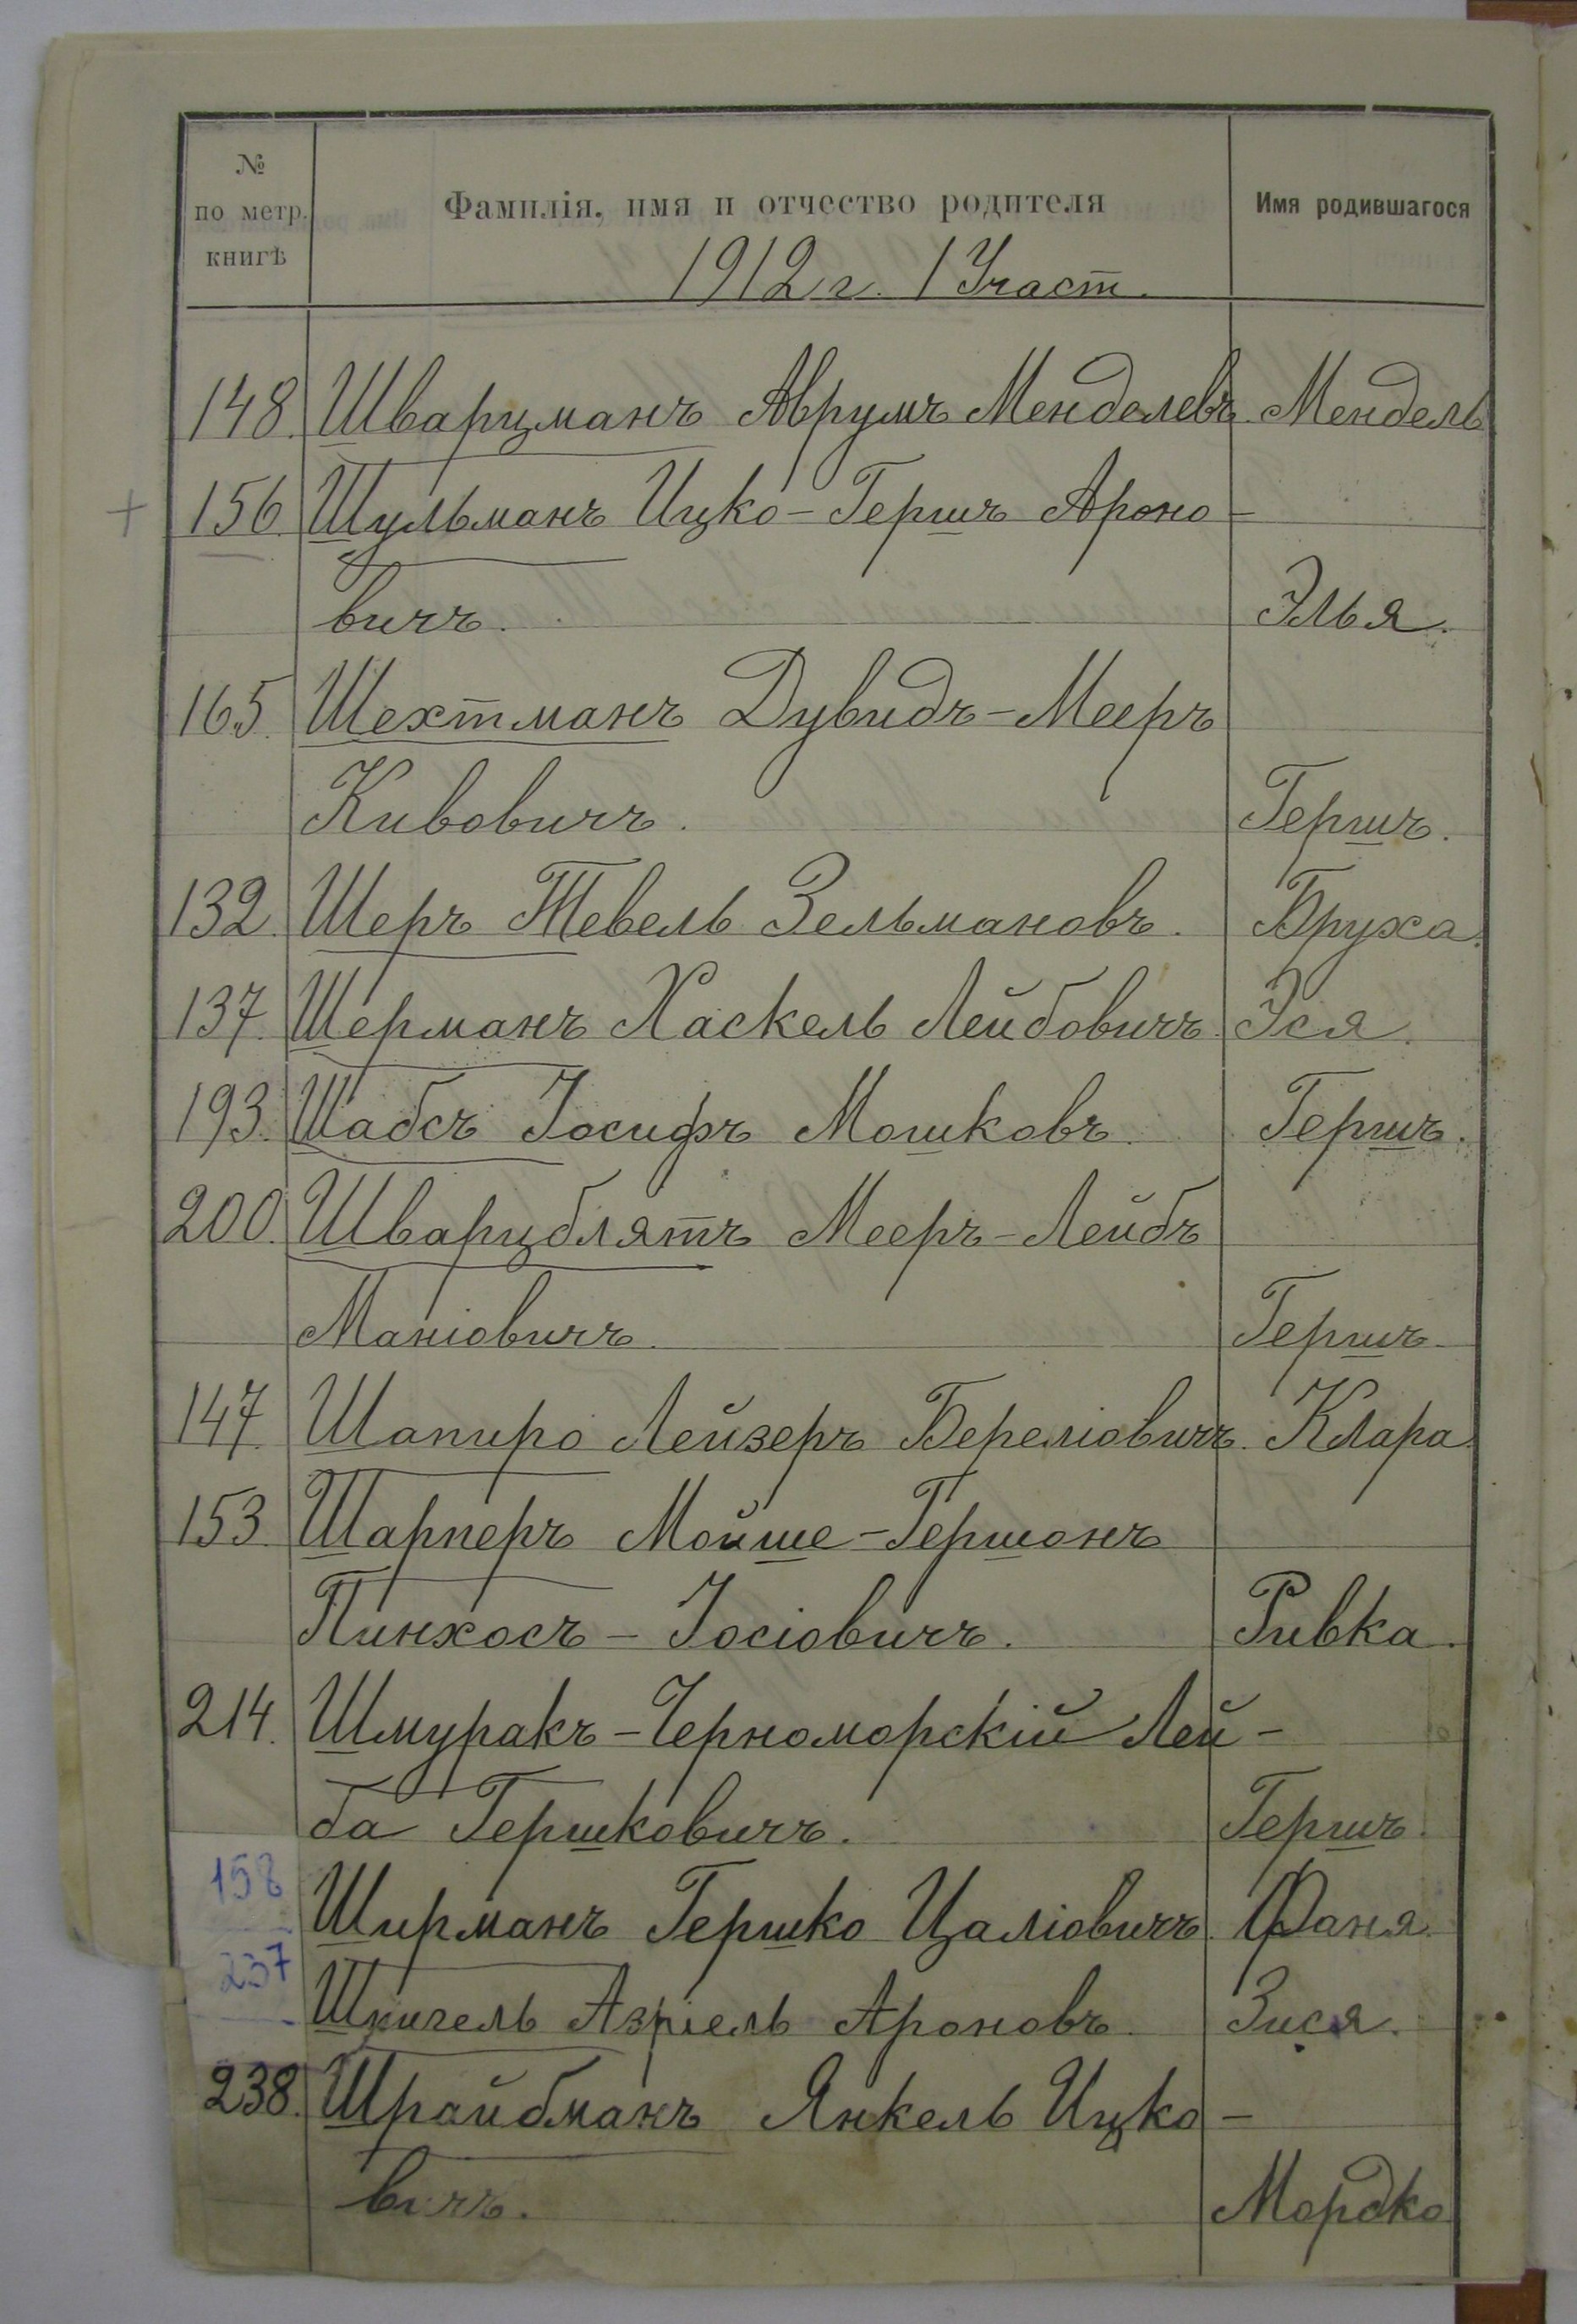 №
по метр.
книгѣ
Фамилія, имя и отчество родителя
Имя родившагося
1912 г. 1 Участ.
148. Шварцманъ Аврумъ Менделевъ. Мендель
+ 156. Шульманъ Ицко-Гершъ Ароно-
вичъ. Элья.
165. Шехтманъ Дувидъ-Мееръ
Кивовичъ. Гершъ.
132. Шеръ Тевель Зельмановъ. Бруха.
137. Шерманъ Хаскель Лейбовичъ. Эся.
193. Шабсъ Іосифъ Мошковъ. Гершъ.
200. Шварцблятъ Мееръ-Лейбъ
Маніовичъ. Гершъ
147. Шапиро Лейзеръ Береліовичъ. Клара.
153. Шарперъ Мойше-Гершонъ
Пинхосъ-Іосіовичъ. Ривка.
214. Шмуракъ-Черноморскій Лей-
ба Гершковичъ. Гершъ.
158 Ширманъ Гершко Цаліовичъ. Фаня.
237 Шпигель Азріель Ароновъ. Зися.
238. Шрайбманъ Янкель Ицко-
вичъ. Мордко